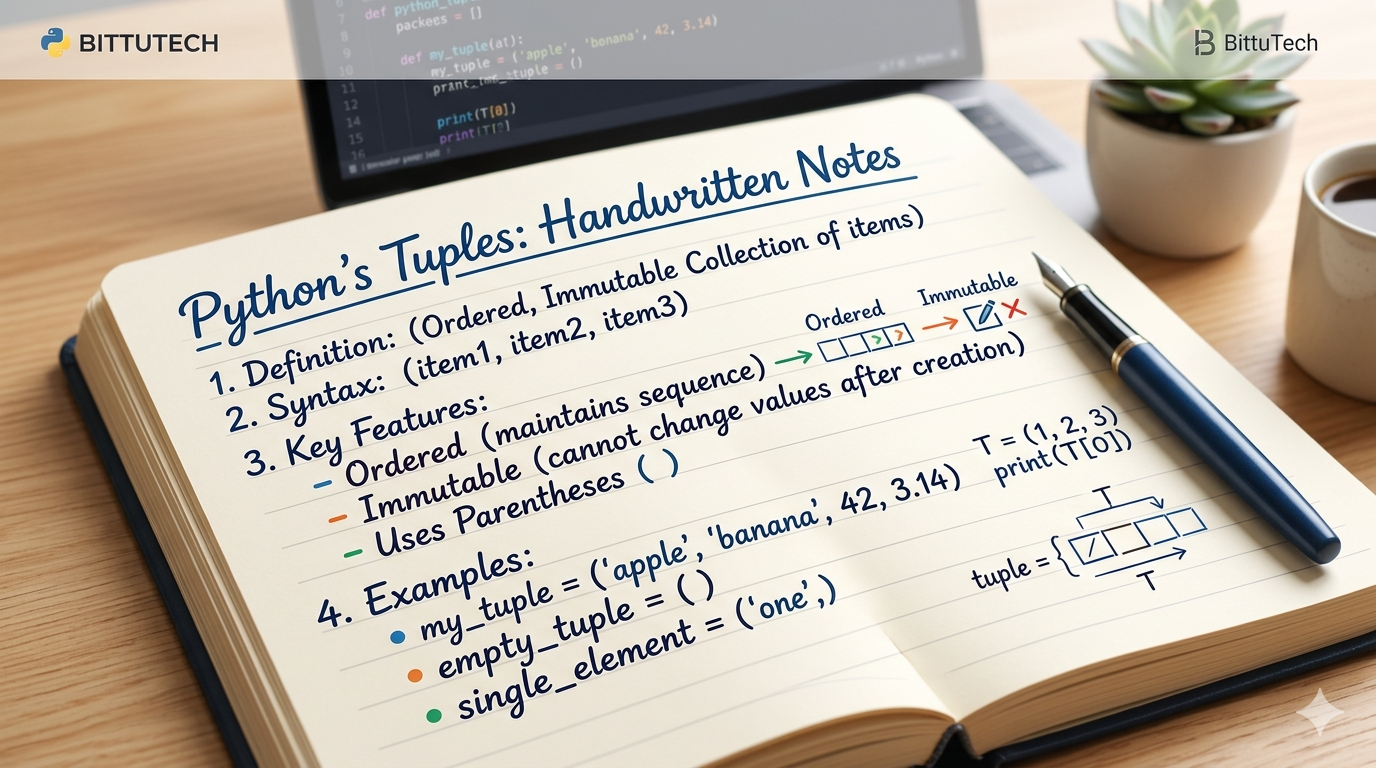 BITTUTECH
BittuTech
6
7 def python_tup
8 packees = []
9
10 def my_tuple(at):
11 my_tuple = ('apple', 'banana', 42, 3.14)
12 = ()
14 print(T[0])
15 print(T[0]
16
Python's Tuples: Handwritten Notes
1. Definition: (Ordered, Immutable Collection of items)
2. Syntax: (item1, item2, item3)
3. Key Features:
– Ordered (maintains sequence) → Ordered → Immutable
– Immutable (cannot change values after creation)
– Uses Parentheses ( )
4. Examples:
• my_tuple = ('apple', 'banana', 42, 3.14)
• empty_tuple = ( )
• single_element = ('one',)
T = (1, 2, 3)
print(T[0])
T
tuple = {
T